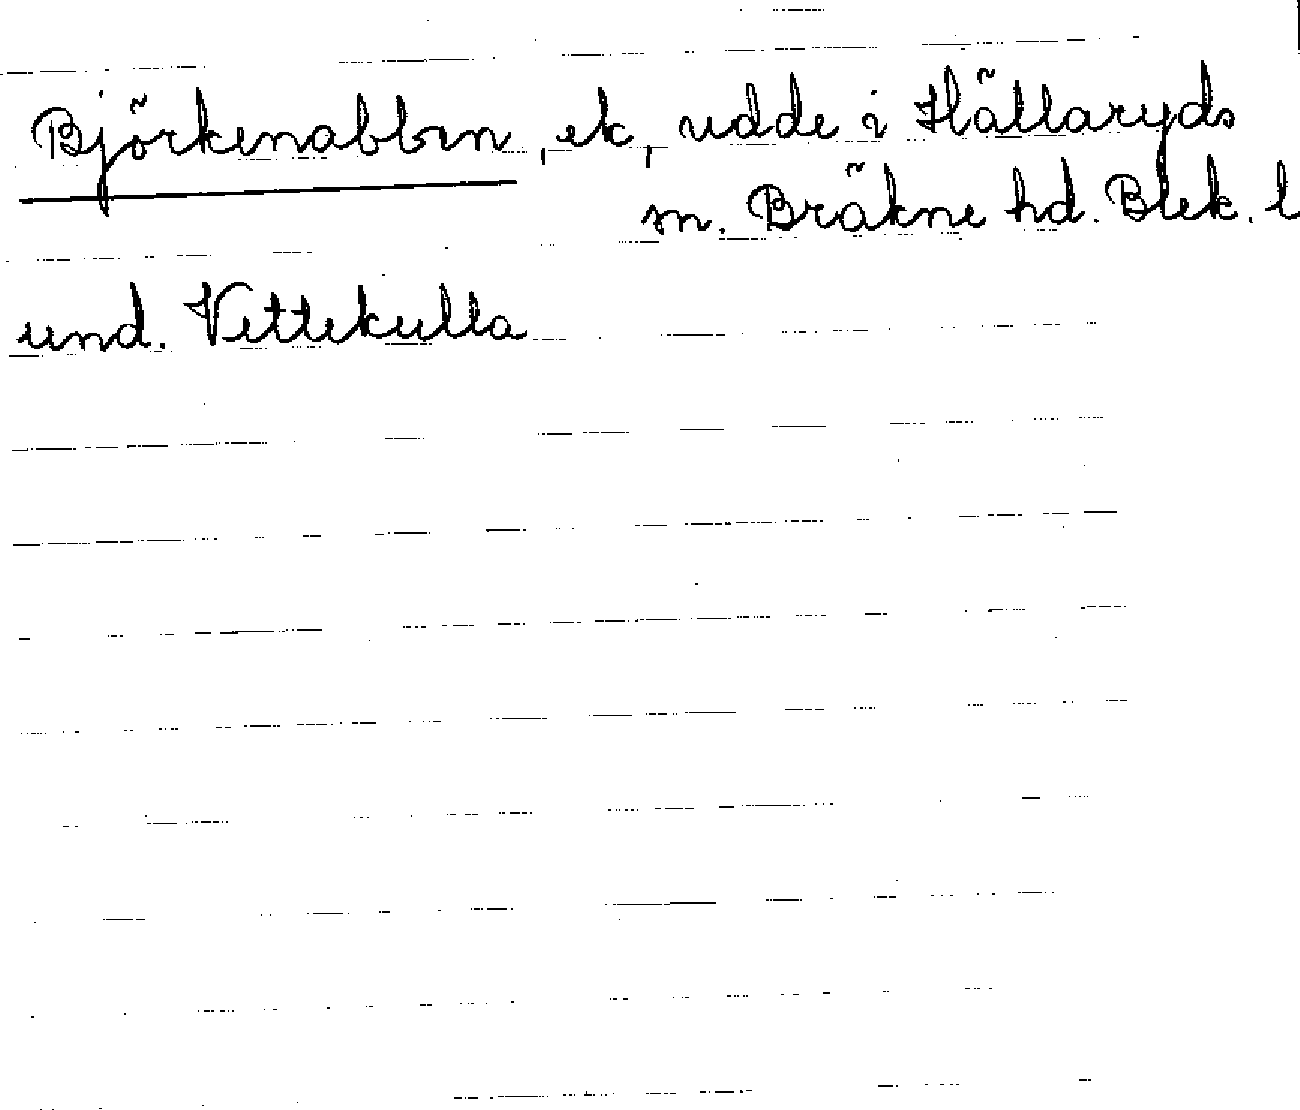 Björkenabben, ek, udde i Hällaryds
sn. Bräkne hd. Blek. l
und. Vettekulla